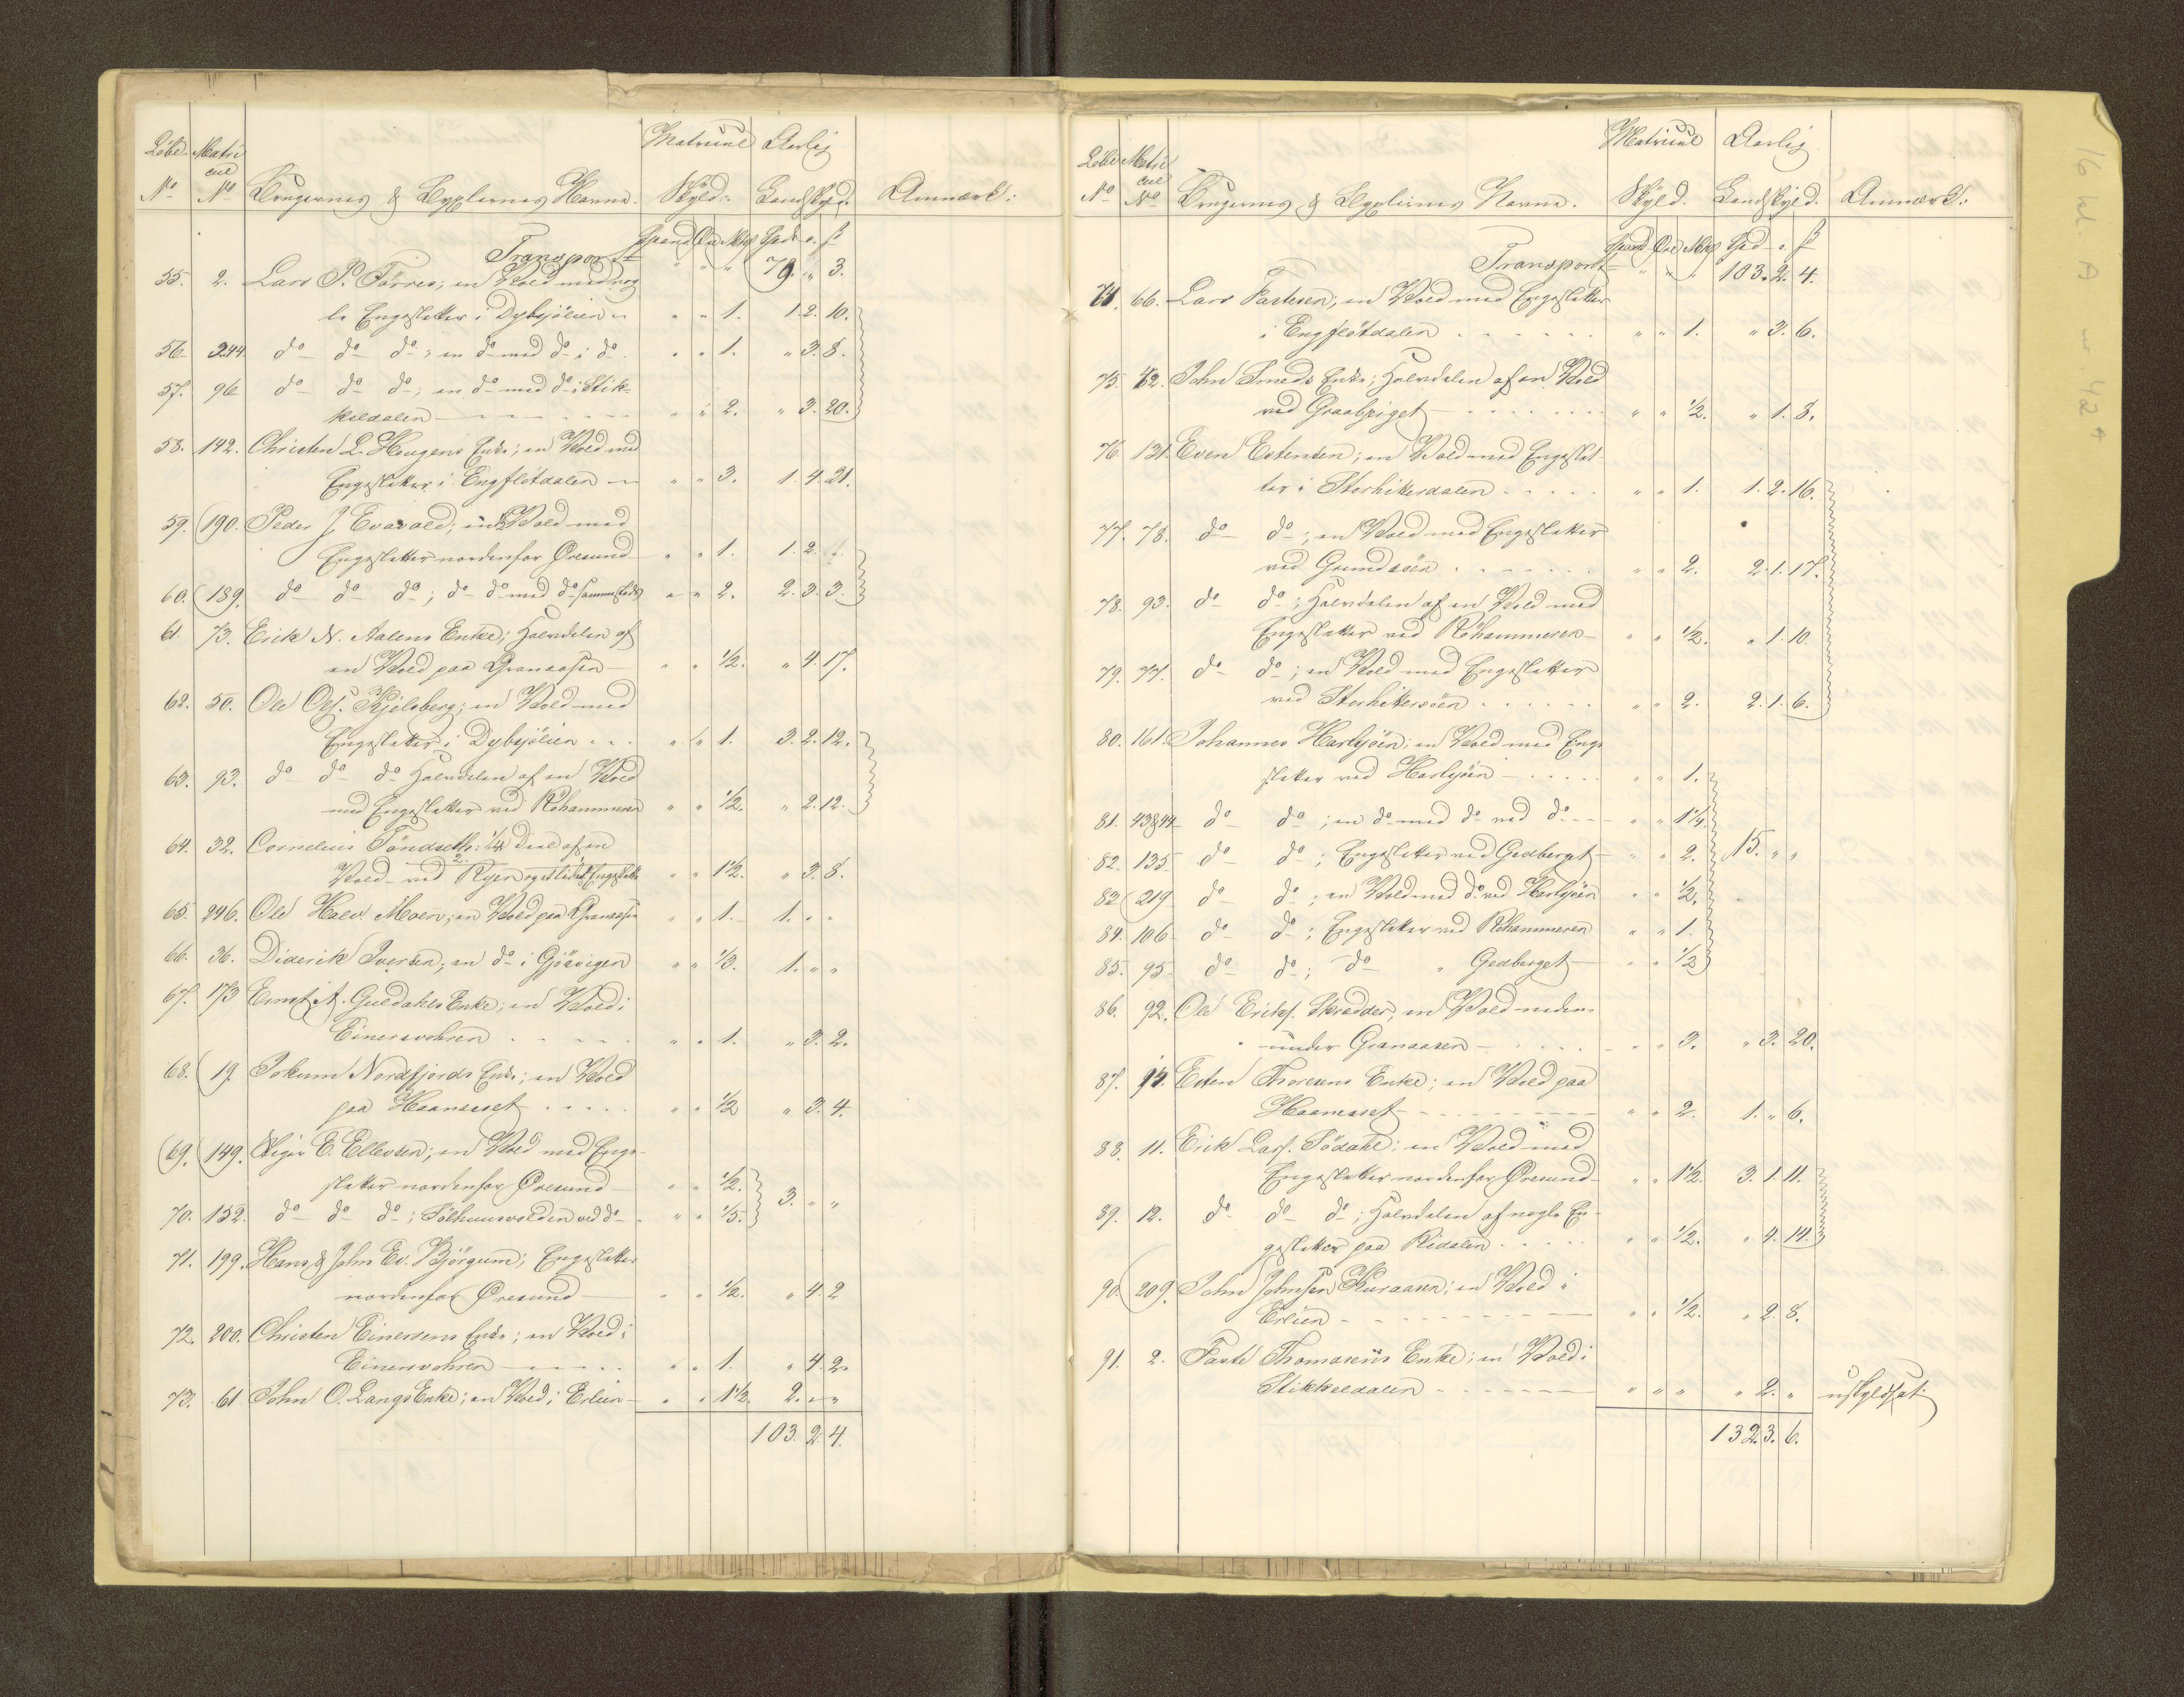 Löbe- Matri Matricul Aarlig
cul
No. No. Brugernes & Bygslernes Navne. Skyld. Landskyld. Anmærk:
Spand Øre Mkl Spd o. ß
Transport " " " 79. " 3.
55. 2. Lars P. Törres; en Vold med nog-
le Engesletter i Dybsjölien " " 1. 1. 2. 10.
56. 244. do do do; en do med do i do. " " 1. " 3. 8.
57. 96 do do do; en do med do i Stik-
keldalen " " 2. " 3. 20.
58. 142. Christen L. Hougens Enke; en Vold med
Engesletter i Engflötdalen " " 3. 1. 4. 21.
59. 190. Peder J. Evavold; en Vold med
Engesletter nordenfor Øresund " " 1. 1. 2.
60. 189. do do do; do do med do sammesteds " " 2. 2. 3. 3.
61. 73. Erick N. Aalens Enke; Halvdelen af
en Vold paa Granaasen " " 1/2. " 4. 17.
62. 50. Ole Ols. Kjelsberg; en Vold med
Engesletter i Dybsjölien " " 1. 3. 2. 12.
63. 93. do do do Halvdelen af en Vold
med Engesletter ved Röhammeren " " 1/2. " 2. 12.
64. 32. Cornelius Töndseth: 1/4 Deel af en
Vold ved Ryen og et lidet Engeslette " " 1 1/2. " 3. 8.
65. 246. Ole Halv. Moen; en Vold paa Granaasen " " 1. 1. " "
66. 36. Diderik Iversen; en do i Gjösvigen " " 1/3. 1. " "
67. 173 Ernst A. Guldahls Enke; en Vold i
Einersvohren " " 1. " 3. 2.
68. 19. Jokum Nordfjords Enke; en Vold
paa Haaneset " " 1/2 " 3. 4.
69. 149. Birger E. Ellevsen; en Vold med Enge-
sletter nordenfor Øresund " " 1/2. 3. " "
70. 152. do do do; Sölhuusvolden ved do " " 1/5.
71. 199. Hans & John Ev. Björgum; Engesletter
nordenfor Øresund " " 1/2. " 4. 2
72. 200. Christen Einersens Enke; en Vold i
Einersvohren " " 1. " 4. 2.
73. 61 John O. Langs Enke; en Vold i Erlien " " 1 1/2. 2. " "
103. 2. 4.
Löbe Matri Matricul Aarlig
cul
No No Brugernes & Bygslernes Navne. Skyld. Landskyld. Anmærk:
Spand Øre Mkl Spd o. ß
Transport " " " 103. 2. 4.
74. 66. Lars Fastesen; en Vold med Engesletter
i Engflötdalen " " 1. " 3. 6.
75. 42. John Smeds Enke; Halvdelen af en Vold
ved Graabjiget " " 1/2. " 1. 8.
76. 131. Even Estensen; en Vold med Engeslet-
ter i Storhitterdalen " " 1. 1. 2. 16.
77. 78. do do; en Vold med Engesletter
ved Grundsöen " " 2. 2. 1. 17.
78. 93. do do; Halvdelen af en Vold med
Engesletter ved Röhammeren " " 1/2. " 1. 10.
79. 77. do do; en Vold med Engesletter
ved Storhittersöen " " 2. 2. 1. 6.
80. 161. Johannes Harsjöen; en Vold med Enge
sletter ved Harsjöen " " 1.
81. 43&44 do do; en do med do ved do " " 1 1/4.
82. 135 do do; Engesletter ved Gedberget " " 2. 15. " "
83 219 do do; en Vold med do ved Harsjöen " " 1/2.
84. 106 do do; Engesletter ved Röhammeren " " 1.
85. 95 do do; do " Gedberget " " 1/2
86. 92. Ole Eriks. Skrædder; en Vold neden-
under Granaasen " " 3. " 3. 20.
87. 14. Esten Thoresens Enke; en Vold paa
Haaneset " " 2. 1. " 6.
88. 11. Erik Lars. Södahl; en Vold med
Engesletter nordenfor Øresund " " 1 1/2. 3. 1. 11.
89. 12. do do do; Halvdelen af nogle En-
gesletter paa Kidalen " " 1/2. " 4. 14.
90. 209. John Johnsen Kuraasen; en Vold i
Erlien " " 1/2. " 2. 8.
91. 2. Faste Thomasens Enke; en Vold i
Stikkeldalen " " " " 2. " uskyldsat
132. 3. 6.